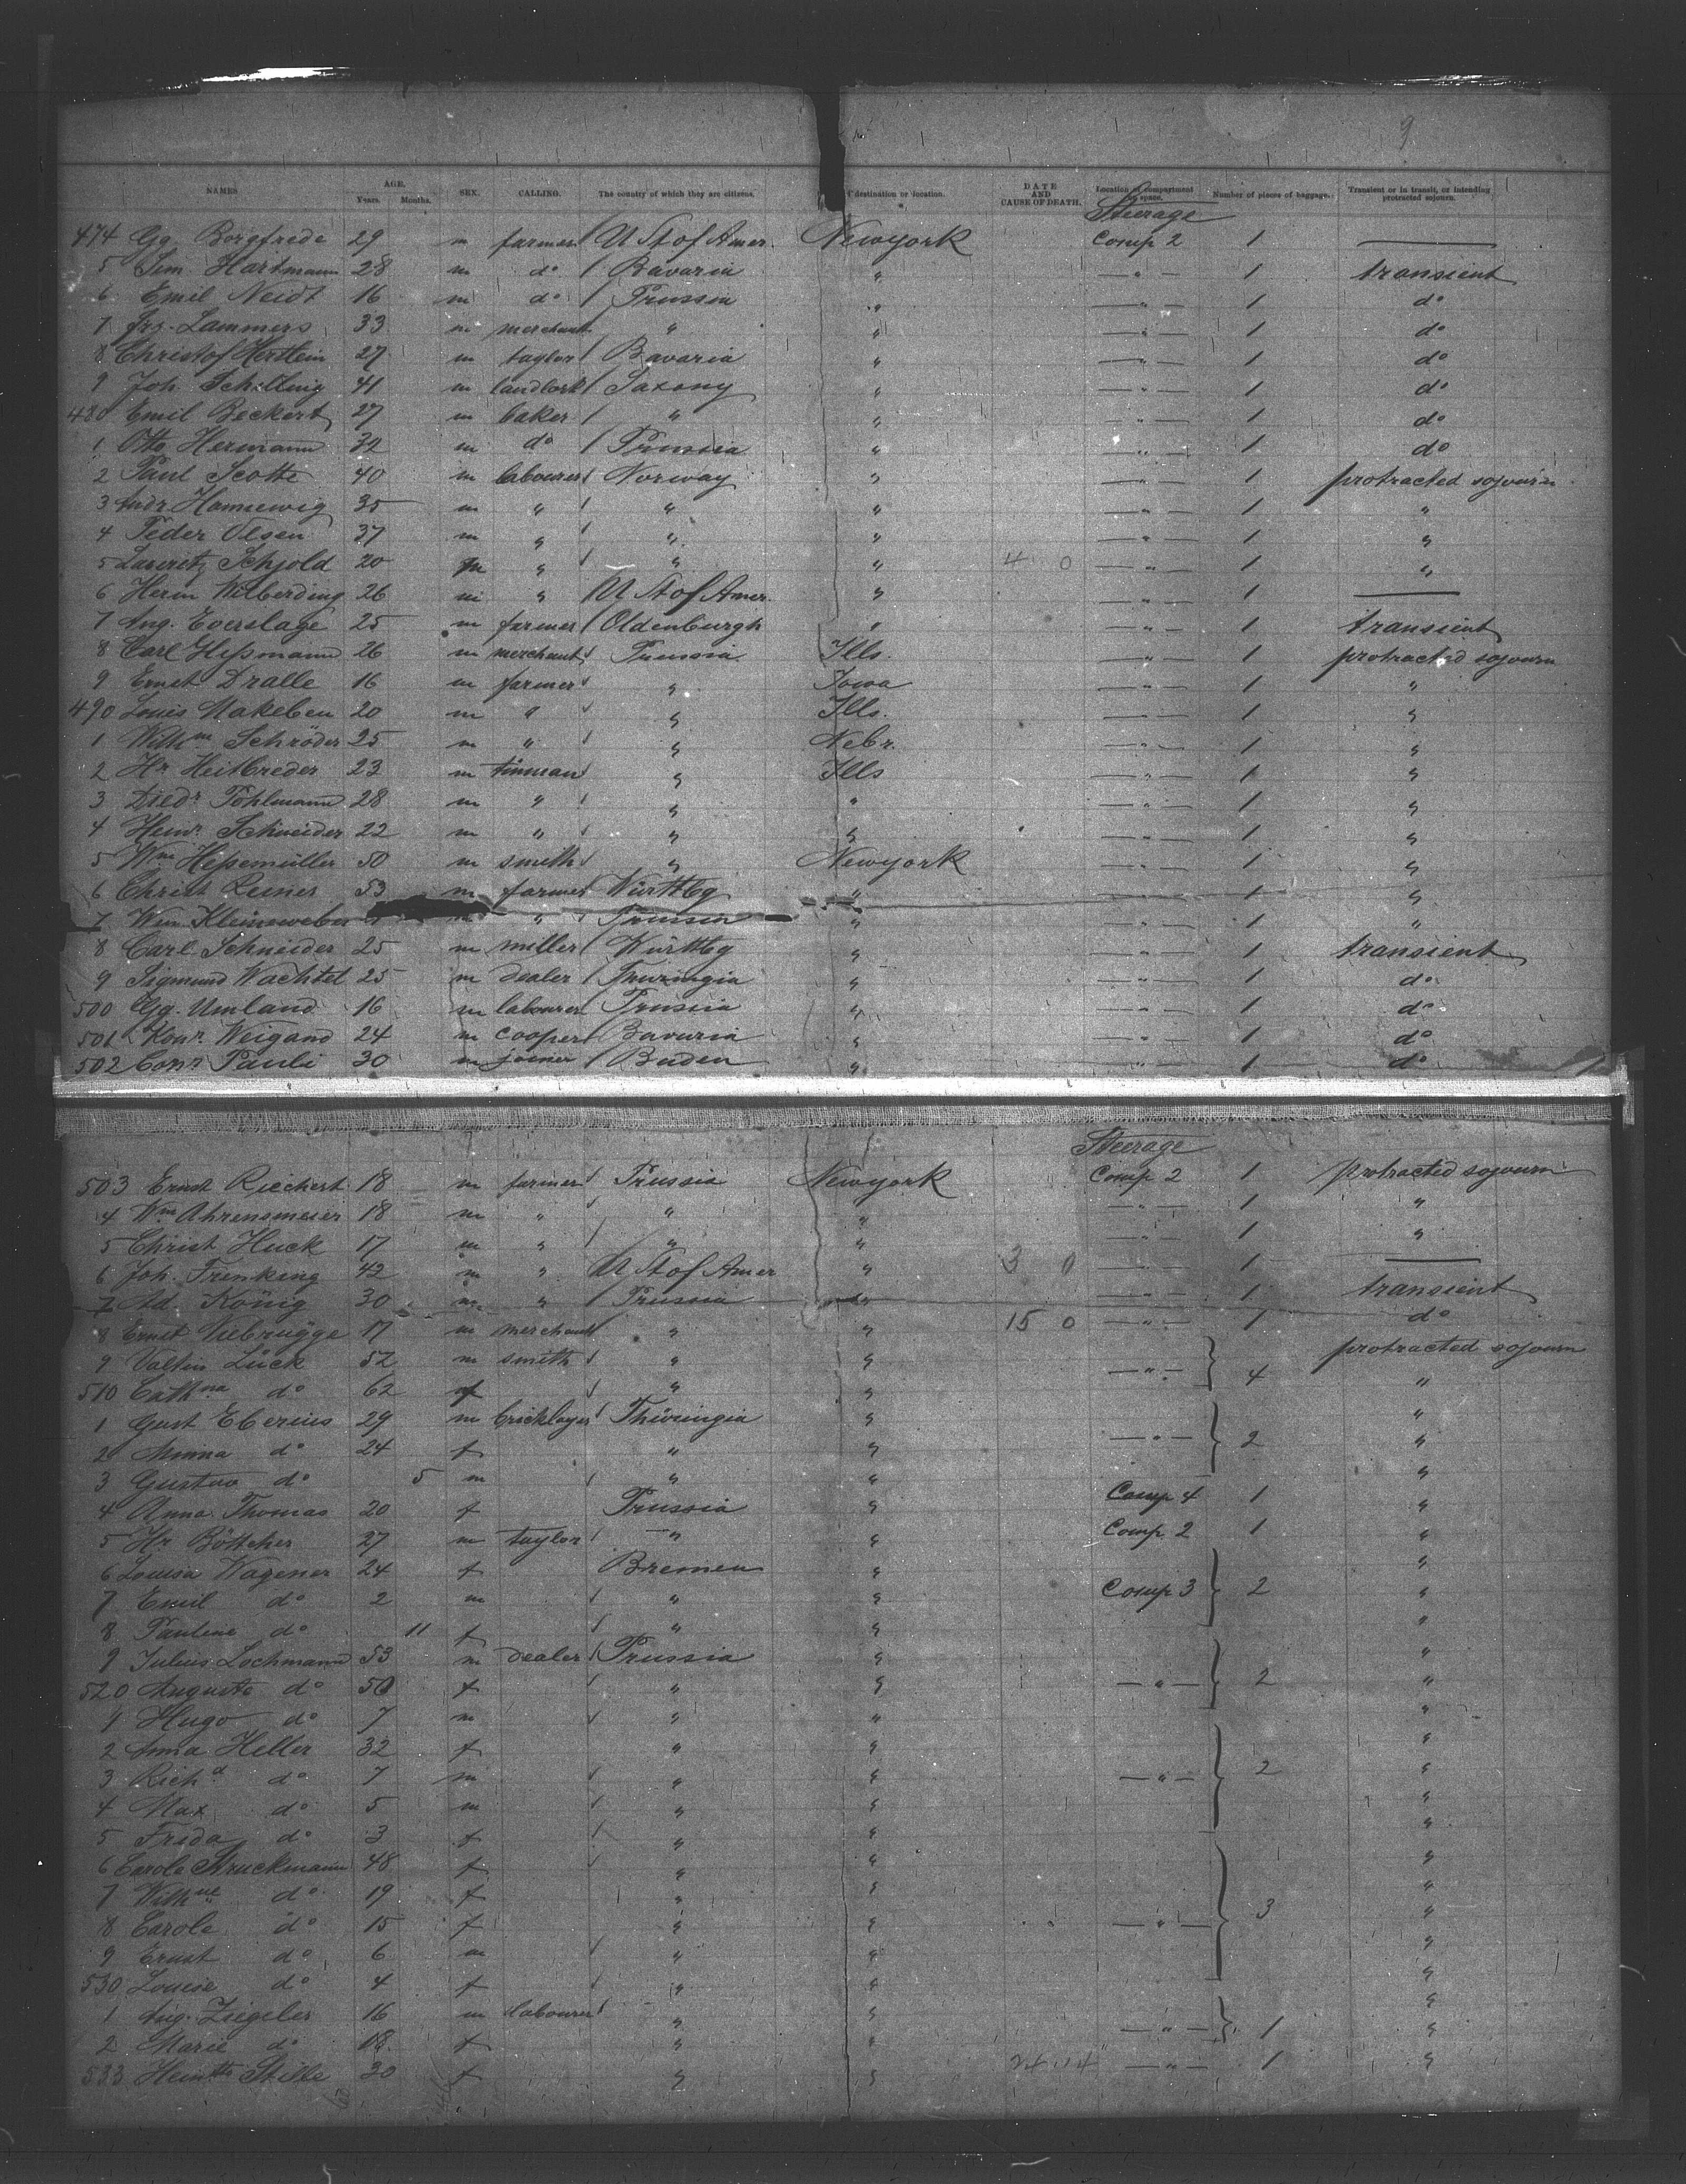 9
NAMES AGE. Years. Months. SEX. CALLING. The country of which they are citizens. destination or location. DATE AND CAUSE OF DEATH. Location of compartment or space. Number of pieces of baggage. Transient or in transit, or intending protracted sojourn.
Steerage
474 Gg. Borgfrede 29 m farmer U St of Amer. Newyork Comp 2 1 —
5 Sim. Hartmann 28 m do Bavaria " — " — 1 transient
6 Emil Neidt 16 m do Prussia " — " — 1 do
7 Frs. Lammers 33 m merchant " " — " — 1 do
8 Christof Hertlein 27 m taylor Bavaria " — " — 1 do
9 Joh. Schilling 41 m landlork Saxony " — " — 1 do
480 Emil Beckert 27 m baker " " — " — 1 do
1 Otto Hermann 32 m do Prussia " — " — 1 do
2 Paul Scotte 40 m labourer Norway " — " — 1 protracted sojourn
3 Andr. Hannewig 35 m " " " — " — 1 "
4 Peder Olsen 37 m " " " — " — 1 "
5 Lauritz Schjold 20 m " " " 4 0 — " — 1 "
6 Herm Wilberding 26 m " U St of Amer. " — " — 1 —
7 Aug. Everslage 25 m farmer Oldenburgh " — " — 1 transient
8 Carl Heßmann 26 m merchant Prussia Ills. — " — 1 protracted sojourn
9 Ernst Dralle 16 m farmer " Iowa — " — 1 "
490 Louis Makeben 20 m " " Ills. — " — 1 "
1 Wilhm Schröder 25 m " " Nebr. — " — 1 "
2 Hr Heitbreder 23 m tinman " Ills — " — 1 "
3 Diedr Pohlmann 28 m " " " — " — 1 "
4 Heinr. Schneider 22 m " " " — " — 1 "
5 Wm Heßemüller 50 m smith " Newyork — " — 1 "
6 Christ Leiner 53 m farmer Württbg " — " — 1 "
7 Wm Kleinsweber m " Prussia " — " — 1 "
8 Carl Schneider 25 m miller Württbg " — " — 1 transient
9 Sigmund Wachtel 25 m dealer Thuringia " — " — 1 do
500 Gg. Umland 16 m labourer Prussia " — " — 1 do
501 Konr. Weigand 24 m cooper Bavaria " — " — 1 do
502 Conr Pauli 30 m joiner Baden " — " — 1 do
Steerage
503 Ernst Rieckert 18 m farmer Prussia Newyork Comp 2 1 protracted sojourn
4 Wm Ahrensmeier 18 m " " " — " — 1 "
5 Christ Huck 17 m " " " — " — 1 "
6 Joh. Trenkeng 42 m " U St of Amer " 3 0 — " — 1 —
7 Ad. König 30 m " Prussia " — " — 1 transient
8 Ernst Viebrugge 17 m merchant " " 15 0 — " — 1 do
9 Valtin Lück 52 m smith " " — " — 4 protracted sojourn
510 Cathna do 62 f " " "
1 Gust Eberius 29 m bricklayer Thüringia " — " — 2 "
2 Minna do 24 f " " "
3 Gustav do 5 m " " "
4 Anna Thomas 20 f Prussia " Comp 4 1 "
5 Hr Böttcher 27 m taylor " " Comp 2 1 "
6 Louisa Wagener 24 f Bremen " Comp 3 2 "
7 Emil do 2 m " " "
8 Pauline do 11 f " " "
9 Julius Lochmann 53 m dealer Prussia " — " — 2 "
520 Auguste do 50 f " " "
1 Hugo do 7 m " " "
2 Anna Heller 32 f " " — " — 2 "
3 Richd do 7 m " " "
4 Max do 5 m " " "
5 Frida do 3 f " " "
6 Carole Struckmann 48 f " " — " — 3 "
7 Wilhne do 19 f " " "
8 Carole do 15 f " " "
9 Ernst do 6 m " " "
530 Louise do 4 f " " "
1 Aug. Ziegeler 16 m labourer " " — " — 1 "
2 Marie do 18 f " " "
533 Heintte Stille 30 f " " — " — 1 "